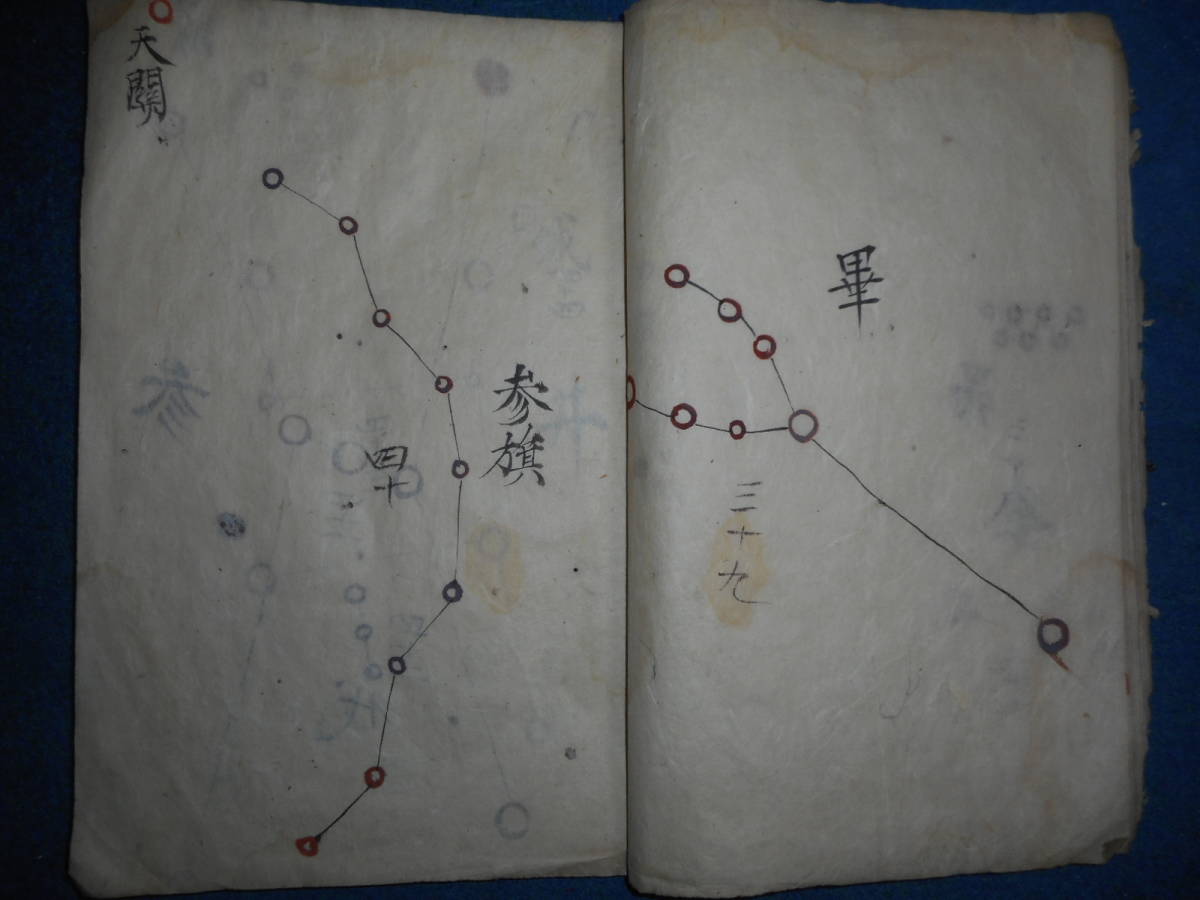 畢
三十九
参旗
四十
天關